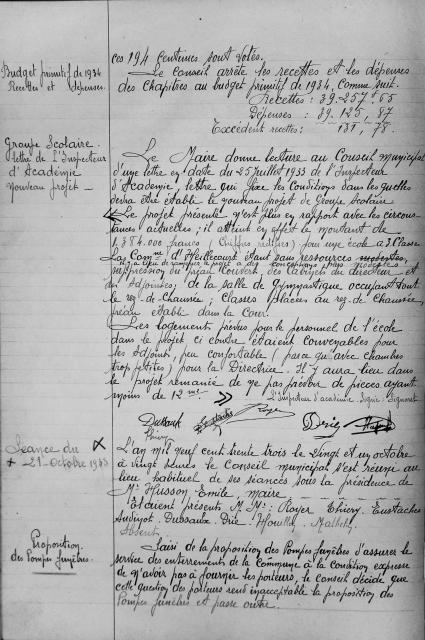 ces 194 centimes sont votés.
Budget primitif de 1934
Recettes et dépenses.
Le Conseil arrête les recettes et les dépenses
des Chapitres au budget primitif de 1934, comme suit.
Recettes : 39.257. 65
Dépenses : 39.125, 87
Excédent recettes: 131, 78.
Groupe Scolaire.
lettre de l'Inspecteur
d'Académie
nouveau projet _
Le Maire donne lecture au Conseil municipal
d'une lettre en date du 25 juillet 1933 de l'Inspecteur
d'Académie, lettre qui fixe les conditions dans lesquelles
devra être établi le nouveau projet de Groupe scolaire
« Le projet présenté n'est plus en rapport avec les circons-
tances actuelles; il atteint en effet le montant de
1,384.000 francs (Chiffres réduits) pour une école à 3 Classes
La Comne d'Heillecourt étant sans ressources modestes,
suppression du préau couvert, des cabinets du directeur et
des adjoints; de la salle de Gymnastique occupant tout
le rez-de-Chaussée; Classes placées au rez-de-Chaussée,
préau établi dans la Cour.
Les logements prévus pour le personnel de l'école
dans le projet ci contre étaient convenables pour
les adjoints, peu confortable (parce qu'avec chambres
trop petites) pour la Directrice. Il y aura lieu dans
le projet remanié de ne pas prévoir de pièces ayant
moins de 12 m² »
L'Inspecteur d'académie. Signé:
Séance du
+ 21 Octobre 1933
L'an mil neuf cent trente trois le vingt et un octobre
à vingt heures le Conseil municipal s'est réuni au
lieu habituel de ses séances sous la présidence de
Mr Husson Emile, maire _
Etaient présents M.M. Royer Thiéry. Eustaches
Dussaux
Absent
Proposition
des Pompes funèbres.
Saisi de la proposition des Pompes funèbres d'assurer le
service des enterrements de la Commune à la condition expresse
de n'avoir pas à fournir les porteurs, le conseil décide que
cette question des porteurs rend inacceptable la proposition des
Pompes funèbres et passe outre.